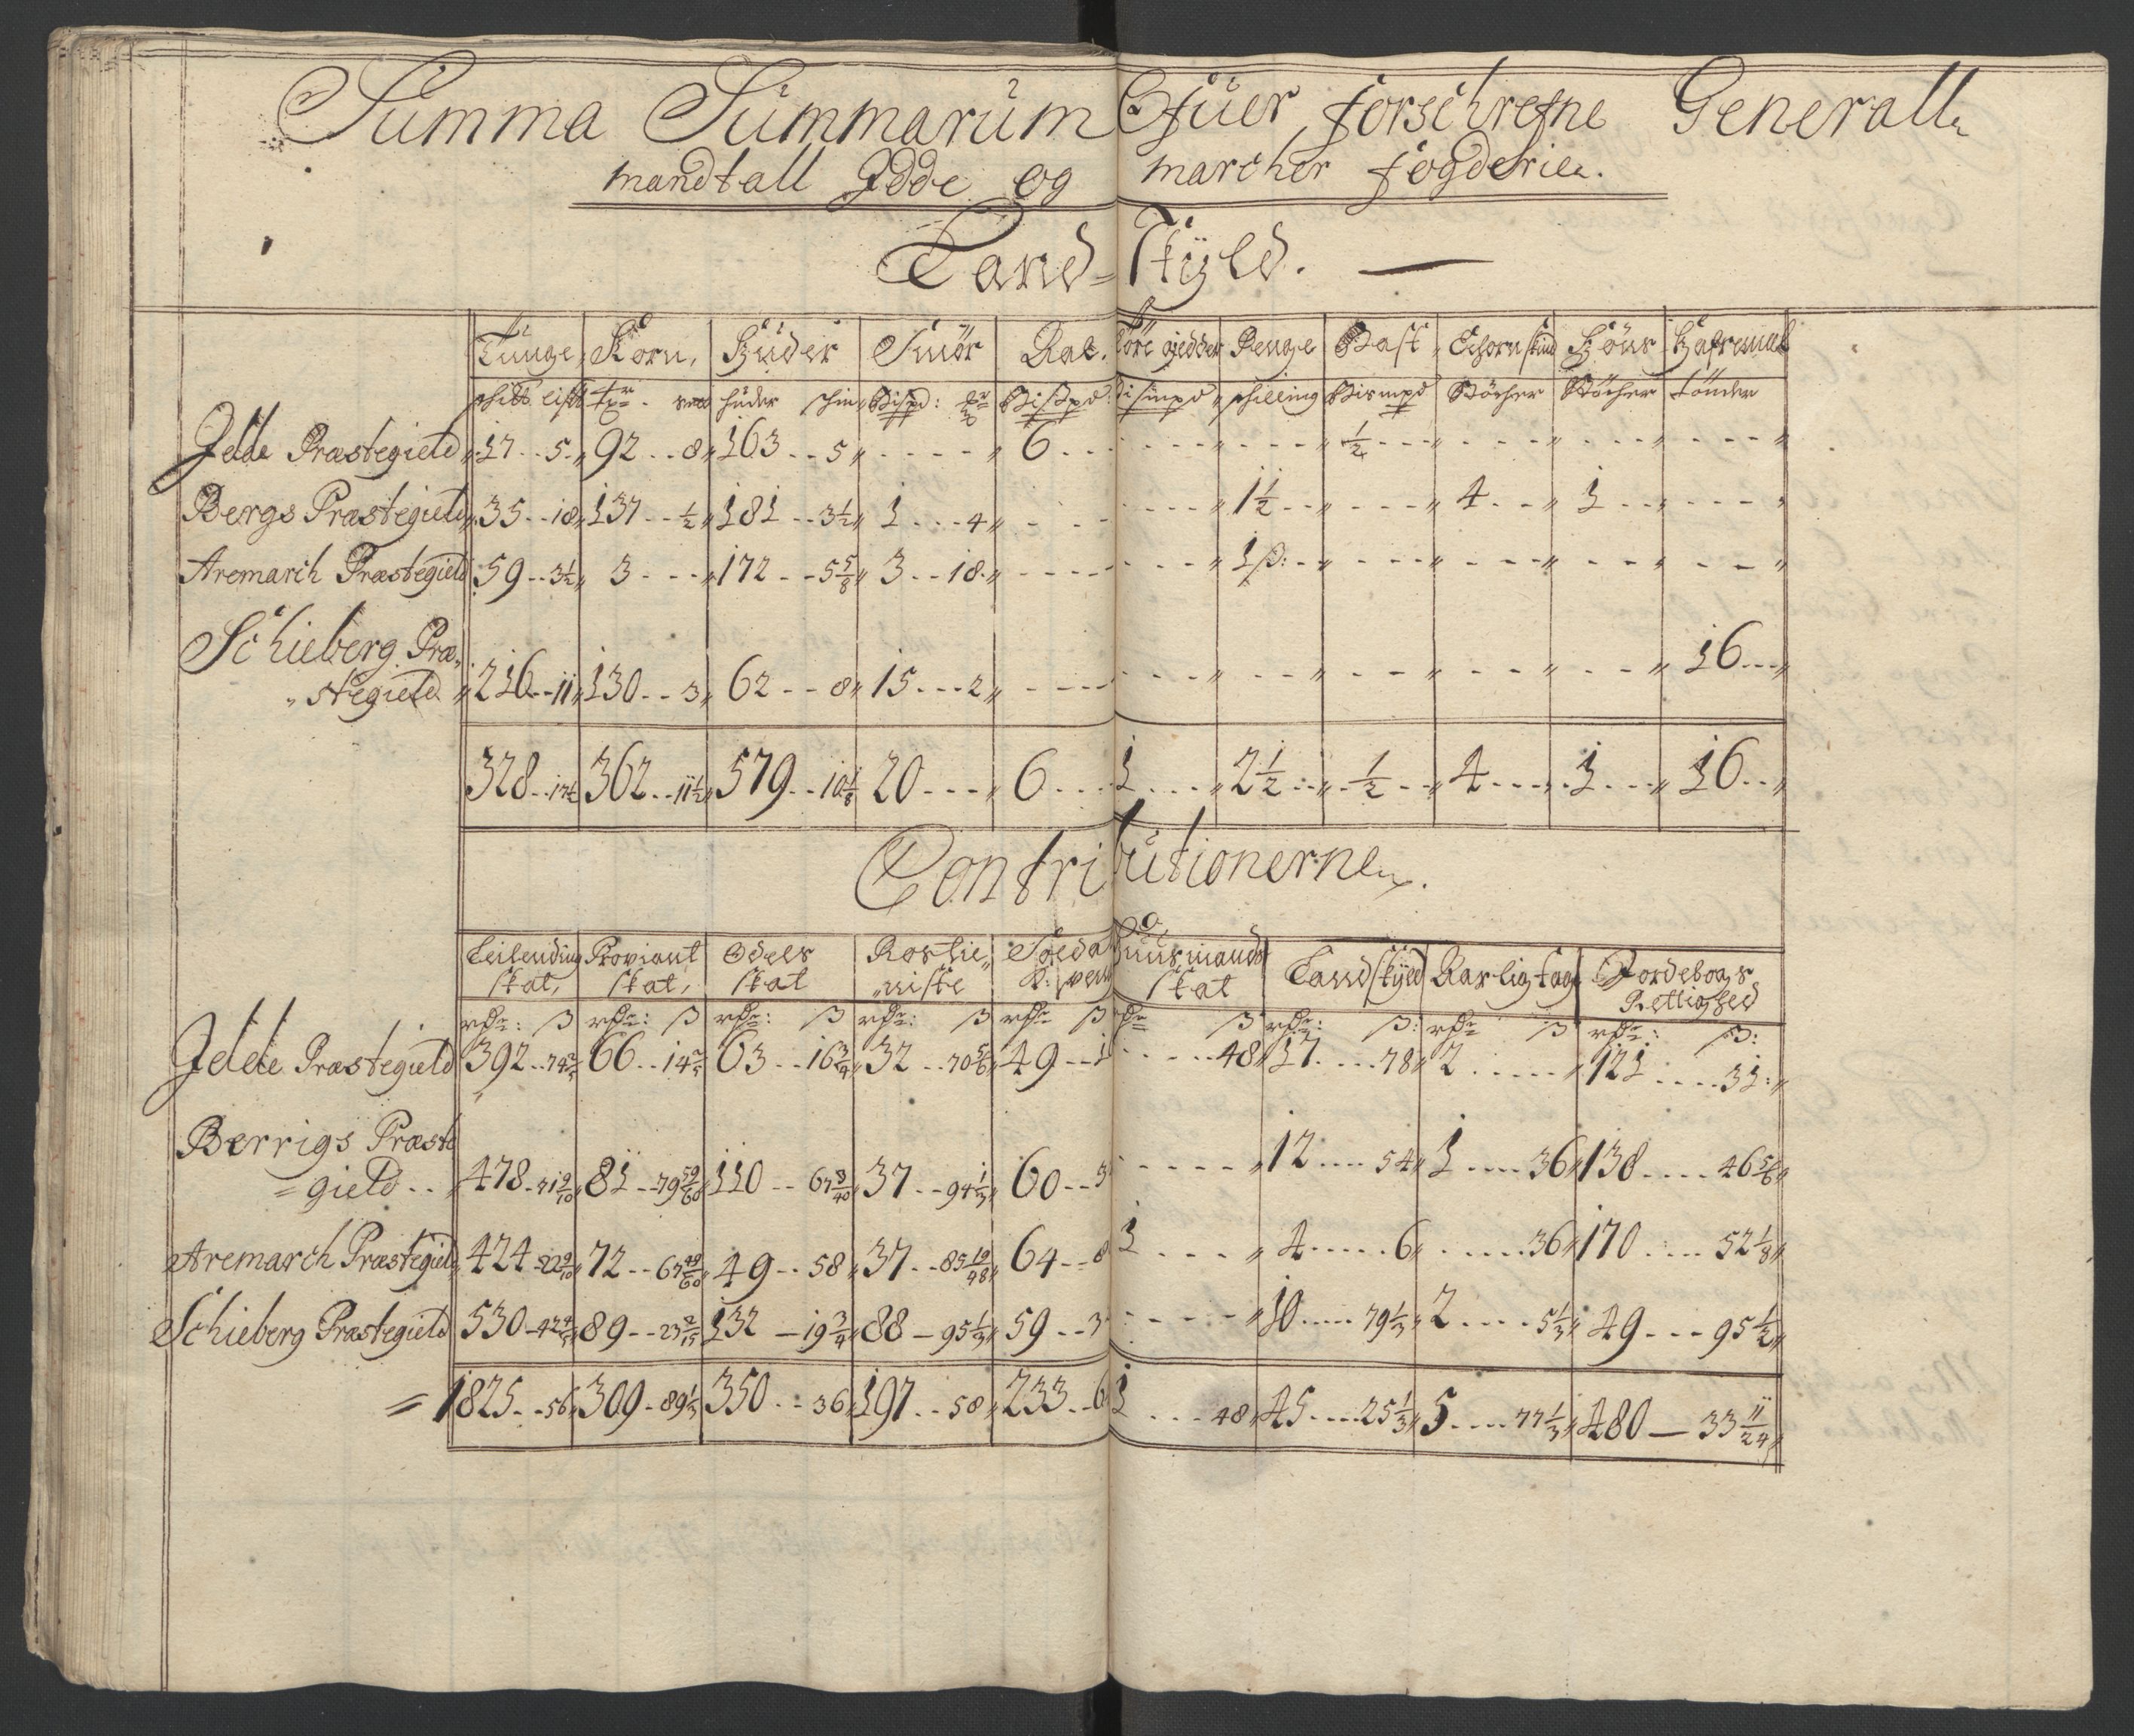 Summa Summarum Ofuer forschrefne Generall
mandtall Idde og marcher fogderie.
Land=Skÿld.
Tunge Korn, Huder Smör Rat. Penge Bast Echornskind Höns Hafremal
huder schin schilling Bismpd Stöcher Stöcher tönder
Idde Præstegield 17 - - 5 92 - - 8 163 - - 5 - - - - 6 - - - - - - - - - - ½ - - - - - - - - - - - - -
Bergs Præstegield 35 - - 18 137 - - ½ 181 - - 3½ 1 - - - 4 - - - - - - 1½ - - - - - - 4 - - 1 - - - - -
Aremarch Præstegield 59 - - 3½ 3 - - - 172 - - 5⅝ 3 - - 18 - - - - - - - 1 ß: - - - - - - - - - - - - - -
Schieberg Præ-
stegield 216 - - 11 130 - - 3 62 - - 8 15 - - - 2 - - - - - - - - - - - - - - - - - - 16 - - -
328 - - 17½ 362 - - 11½ 579 - - 10⅛ 20 - - - 6 - - - 1 - - - 2½ - - ½ - - 4 - - - 1 - - - 16 - -
Contributionerne.
Leilending Proviant Odels Rostie Huusmands Landskÿld Rarligtage Jordebogs
skat, skat, skat niste skat Rettighed
rdr: ß rdr: ß rdr: ß rdr: ß rdr ß ß rdr: ß: rdr ß rdr: ß:
Idde Præstegield 392 - - 66 - - 63 - - 16¾ 32 - - 70⅚ 49 - - 1 - - - - 48 17 - - - 78 2 - - - - 121 - - - 31
Berrigs Præste
=gield - - 478 - 71 9/10 81 - - 79 59/60 110 - - 37 - - 94⅓ 60 - - 3 - - - - - 12 - - - 54 1 - - - 36 138 - - - 46⅚
Aremarch Præstegield 424 - 22 9/10 72 - - 67 49/60 49 - - 58 37 - - 85 19/48 64 - - 8 1 - - - 4 - - - - 6 - - - - 36 170 - - - 52⅛
Schieberg Præstegield 530 - 42⅘ 89 - - 23 2/15 132 - 19¾ 88 - 95⅓ 59 - - 3 - - - - - 10 - - - 79⅓ 2 - - - 5⅓ 49 - - - 95½
= 1825 - - 56 309 - 89⅓ 350 - - 36 197 - - 58 233 - - 6 1 - - - 48 45 - - - 25⅓ 5 - - - 77⅓ 480 - 33 11/24